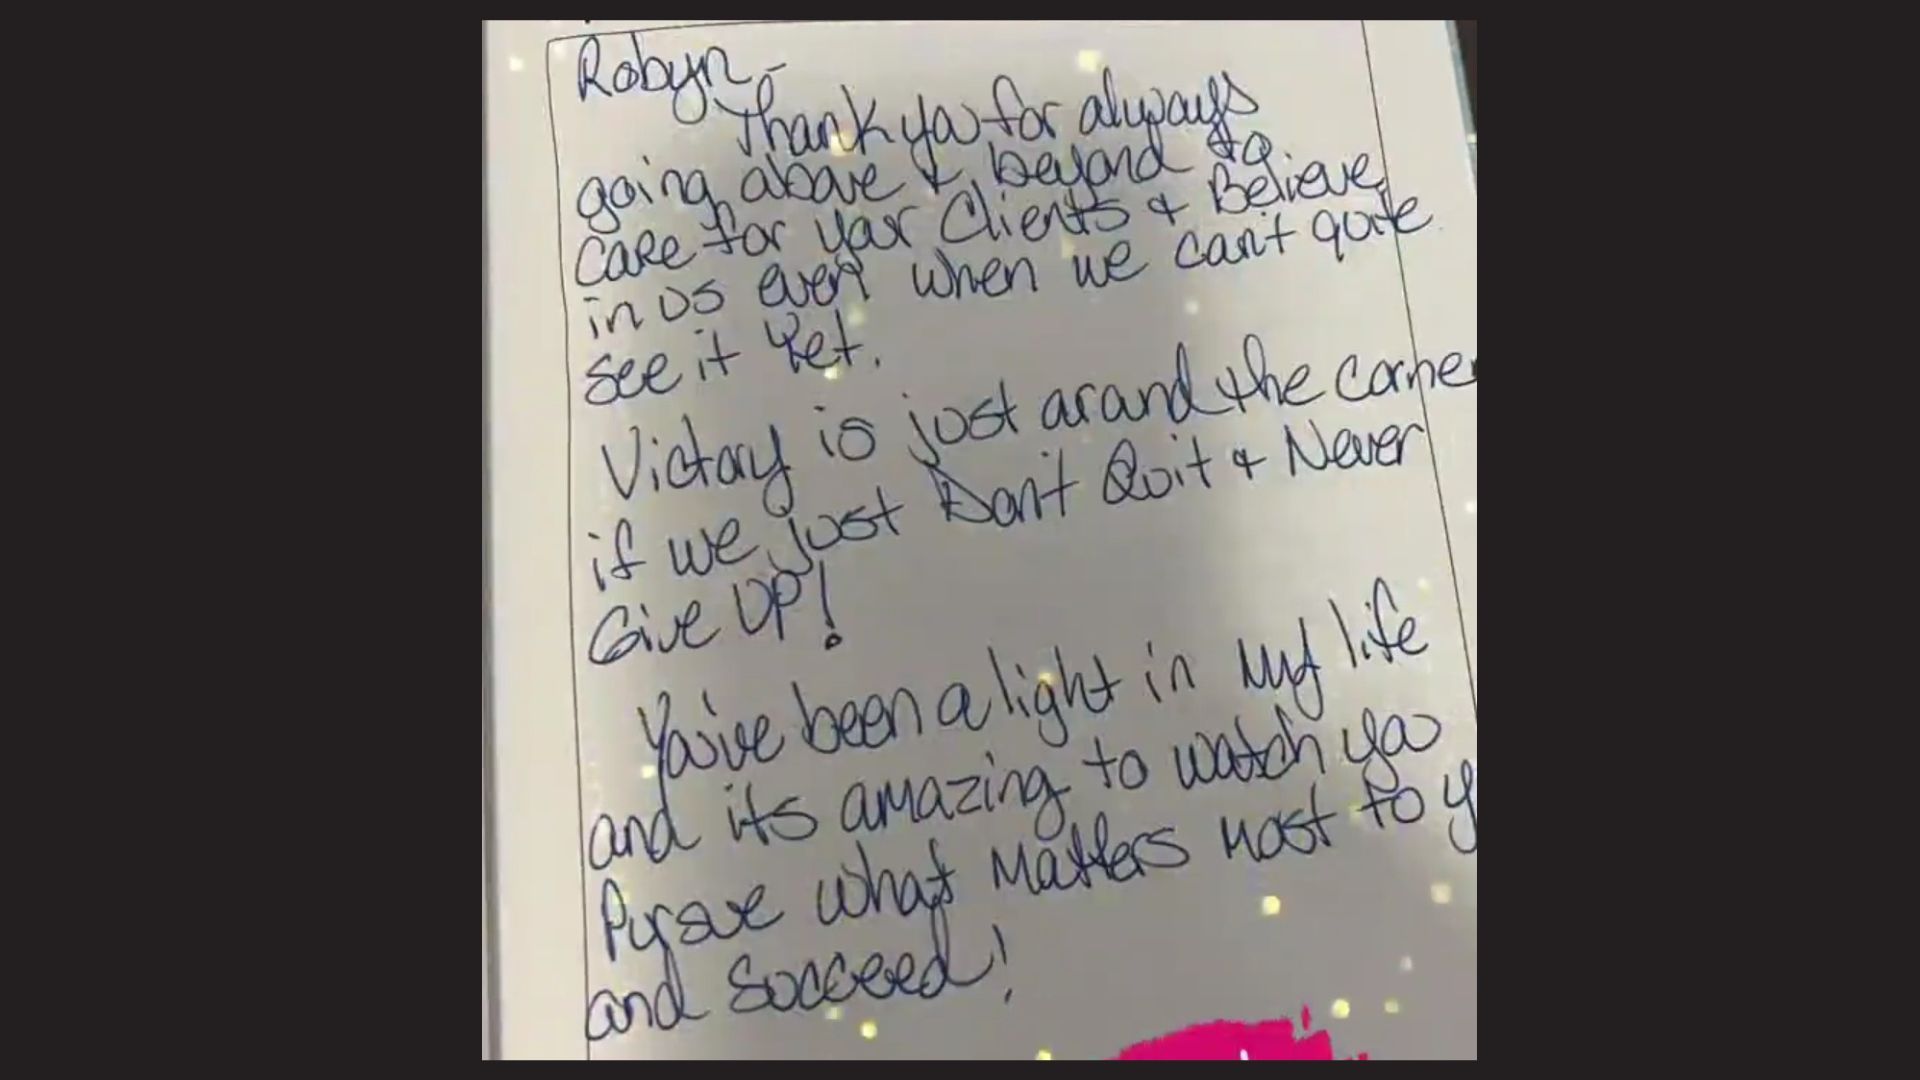 Robyn -
Thank you for always
going above & beyond to
care for your Clients & Believe
in us even when we can't quite
see it Yet.
Victory is just around the corne
if we just Don't Quit & Never
Give UP!
You've been a light in My life
and its amazing to watch you
Pursue what Matters most to y
and Succeed!